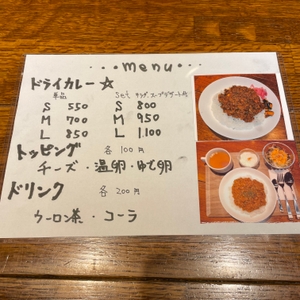 ...menu...
ドライカレー☆
単品 Set サラダ、スープ、デザート付
S 550 S 800
M 700 M 950
L 850 L 1,100
トッピング 各100円
チーズ・温卵・ゆで卵
ドリンク 各200円
ウーロン茶・コーラ